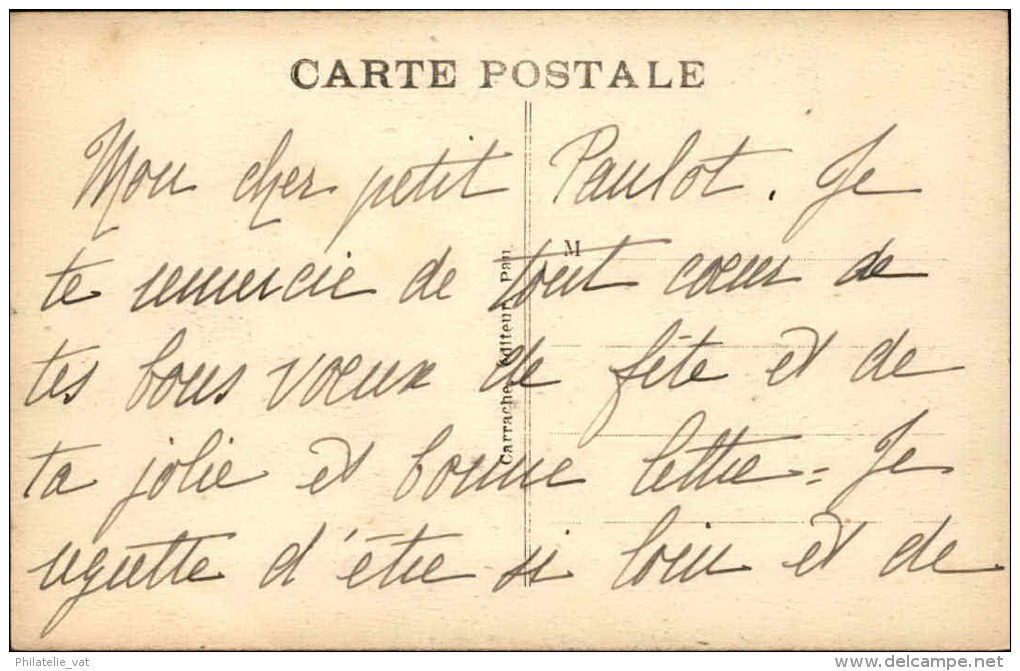 CARTE POSTALE
Mon cher petit Paulot. Je
te remercie de tout cœur de
tes bons vœux de fête et de
ta jolie et bonne lettre = Je
regrette d'être si loin et de
M
Carrache, éditeur, Pau.
Philatelie_vat
www.delcampe.net